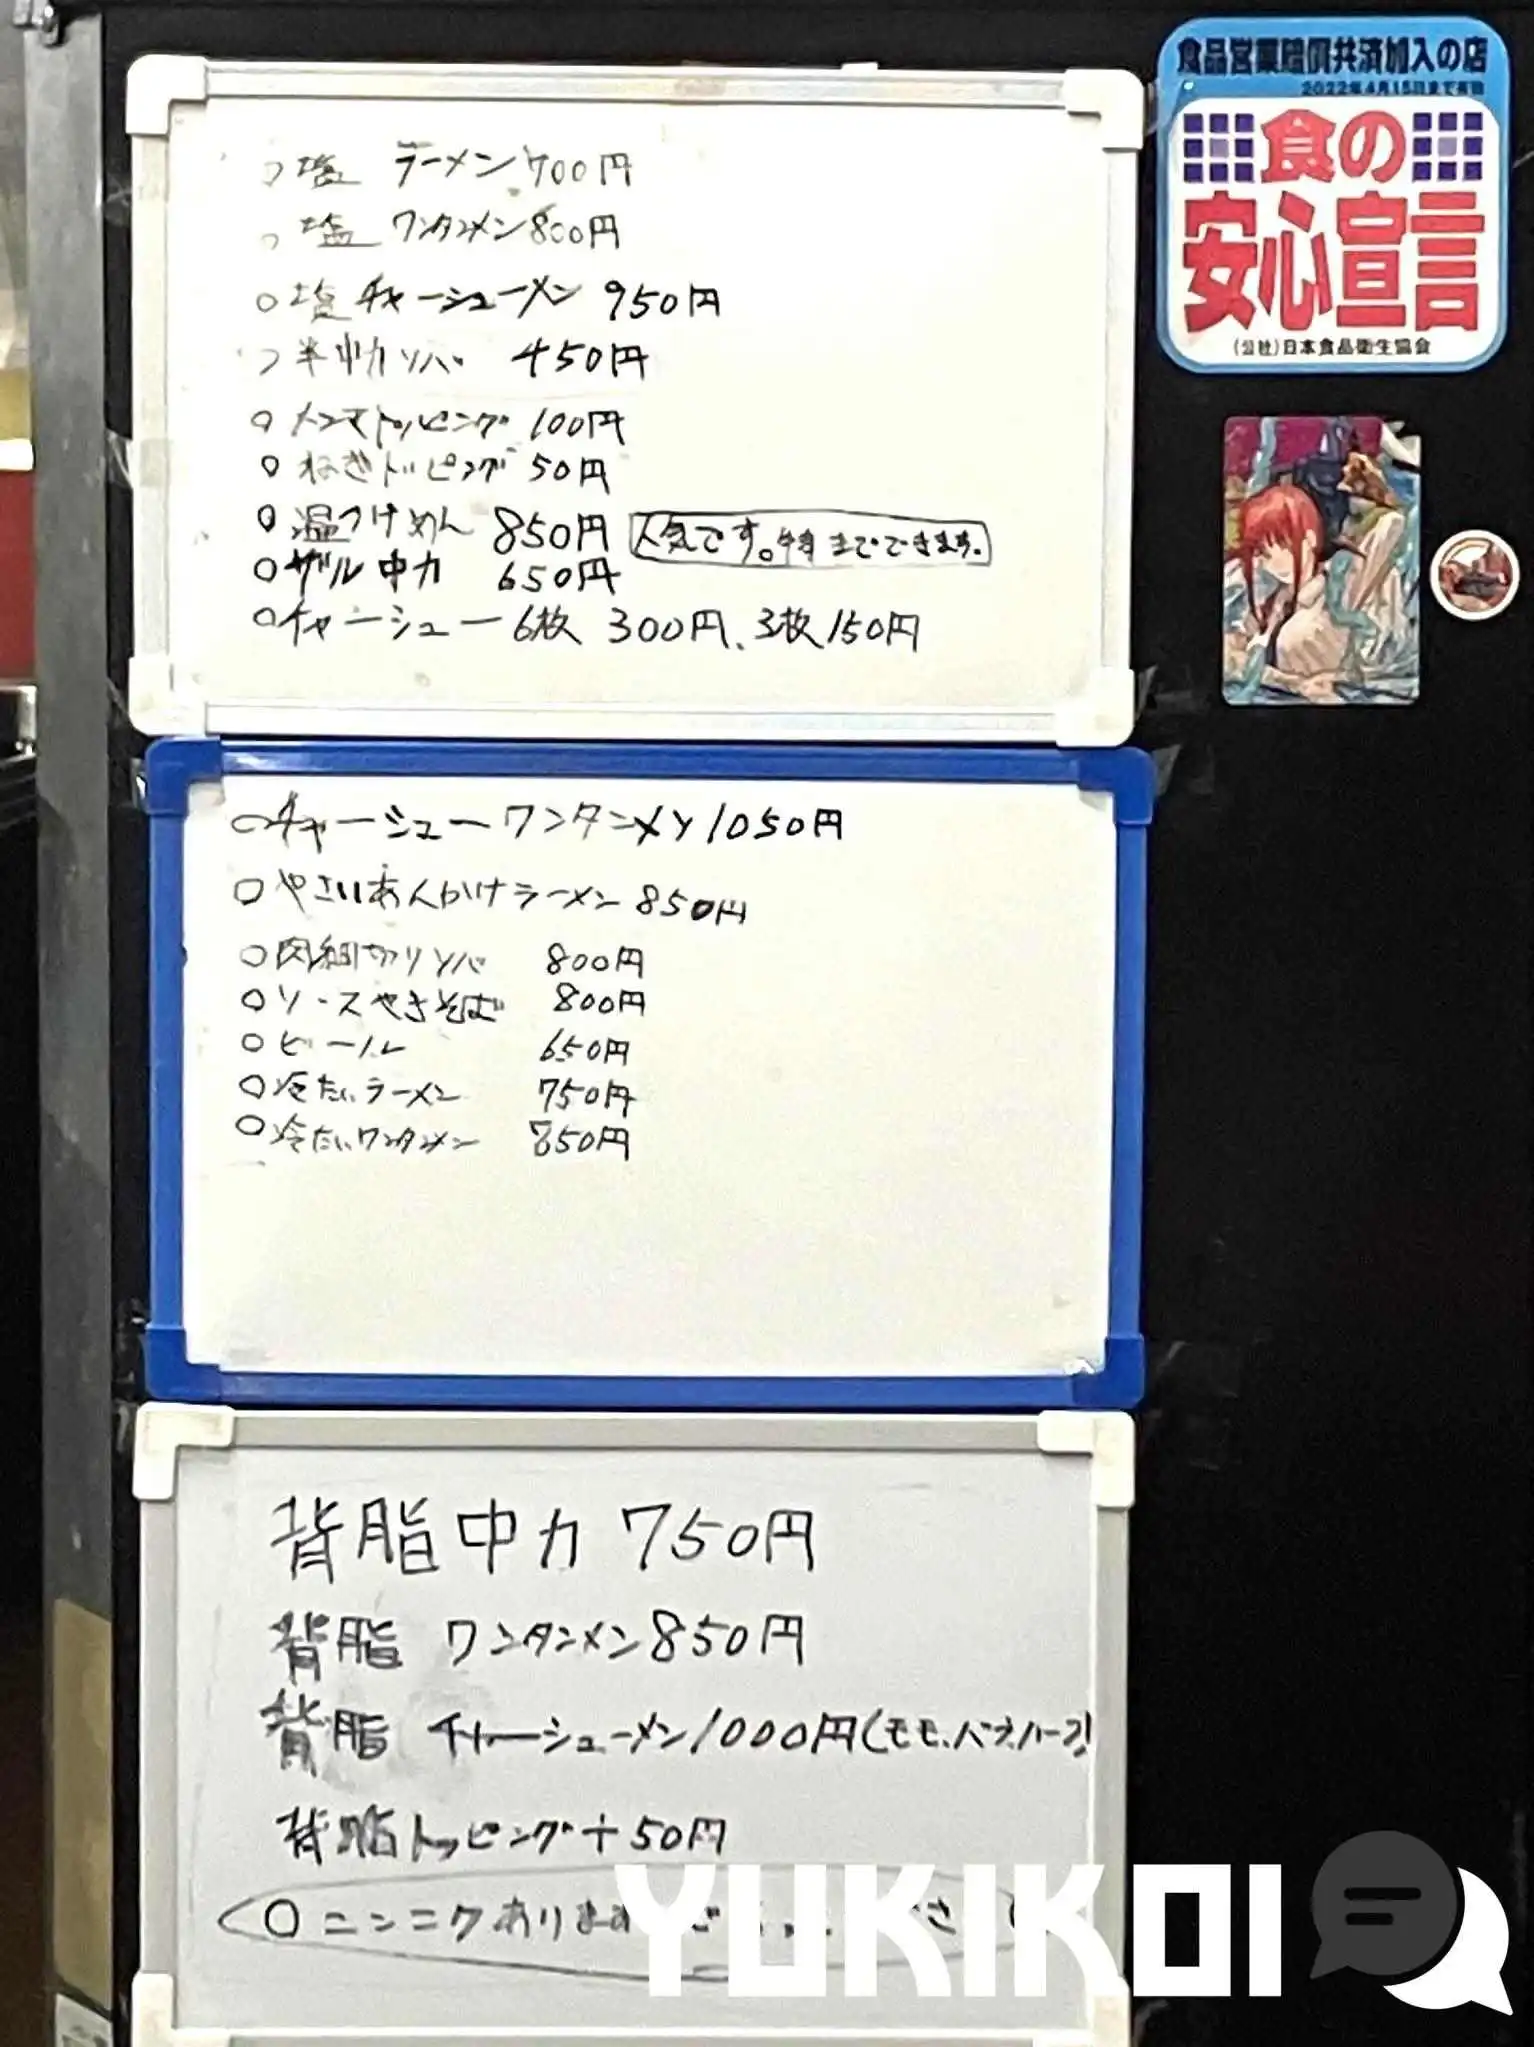 ○塩 ラーメン 700円
○塩 ワンタンメン 800円
○塩 チャーシューメン 950円
○半中力ソバ 450円
○メンマトッピング 100円
○ねぎトッピング 50円
○温つけめん 850円 人気です。特までできます。
○ザル中力 650円
○チャーシュー6枚 300円、3枚150円
○チャーシューワンタンメン1050円
○やさいあんかけラーメン 850円
○肉細切りソバ 800円
○ソースやきそば 800円
○ビール 650円
○冷たいラーメン 750円
○冷たいワンタンメン 850円
背脂中力 750円
背脂 ワンタンメン850円
背脂 チャーシューメン1000円(モモ、バラ、ハーフ)
背脂トッピング+50円
○ニンニクあります
食品営業賠償共済加入の店
2022年4月15日まで有効
食の
安心宣言
(公社)日本食品衛生協会
YUKIKOI